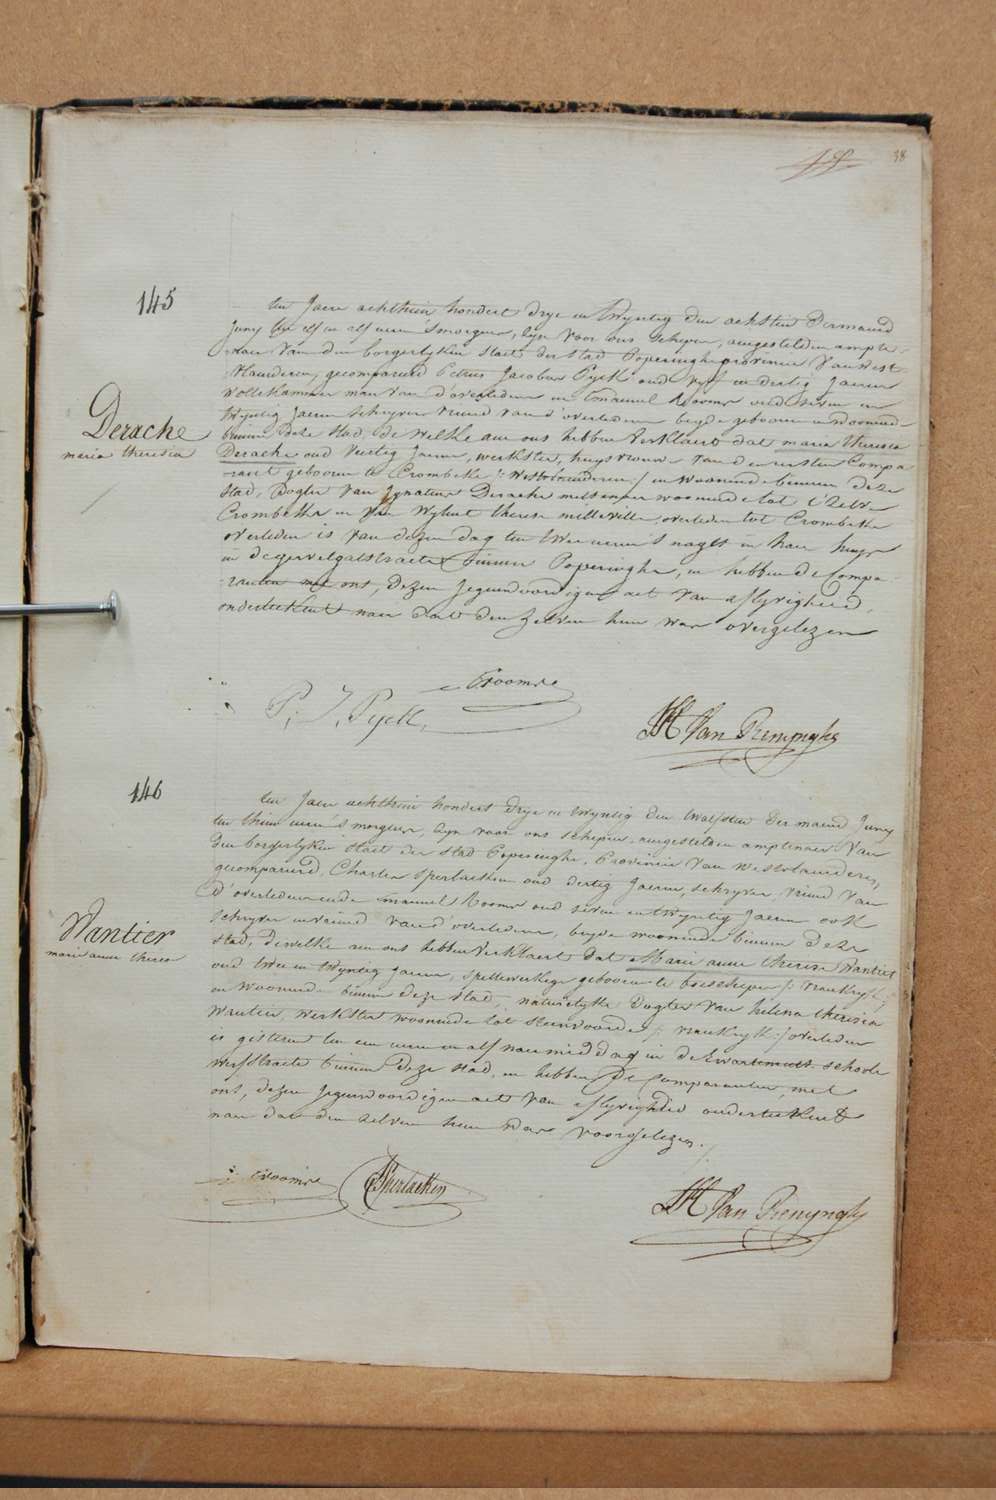 38
145
Derache
maria theresia
ten Jaere achthien hondert drye en twyntig den achsten der maend
Juny ten elf en alf uren 's morgens, zyn voor ons schepen, aengestelden ampte-
naer van den borgerlyken staet der stad Poperinghe provincie van west
vlaenderen, gecompareerd Petrus Jacobus Pyck oud vyf en dertig Jaeren
wollekammer man van d'overledene en Emanuel Rooms oud seven en
twyntig Jaeren schryver vriend van d'overledene beyde geboren en woonende
binnen deze stad, de welke aen ons hebben verklaert dat maria theresia
Derache oud veertig Jaeren, werkster, huysvrouw van den eersten Compa
rant geboren te Crombeke /: Westvlaenderen :/ en woonende binnen deze
stad, Dogter van Ignatius Derache melsenaer woonende tot t'zelve
Crombeke en van wylent therese milleville overleden tot Crombeke
overleden is van dezen dag ten twee uren 's nagts in haer huys
in de gervelgatstraete binnen Poperinghe, en hebben de Compa-
ranten met ons, dezen Jegenwoordigen act van aflyvigheid,
onderteekent naer dat den zelven hun was overgelezen
ERooms
P: J. Pyck,
JH Van Renynghe
146
Wantier
marie anne therese
ten Jaere achthien hondert drye en twyntig den twalfsten der maend Juny
ten thien uren 's morgens, zyn voor ons schepen, aengestelden amptenaer van
den borgerlyken staet der stad Poperinghe, Provincie van westvlaenderen,
gecompareerd, Charles Sperlaeken oud dertig Jaeren, schryver, vriend van
d'overledene ende Emanuel Rooms oud seven en twyntig Jaeren ook
schryver en vriend van d'overledene, beyde woonende binnen deze
stad, dewelke aen ons hebben verklaert dat Marie anne therese Wantier
oud twee en twyntig Jaeren, spellewerkege geboren te boeschepe /: vrankryk :/
en woonende binnen deze stad, naturelyke Dogter van helena theresia
Wantier, werkster woonende tot steenvoorde /: vrankryk :/ overleden
is gisteren ten een uren en alf naer middag in de schoole
straete binnen deze stad, en hebben de Comparanten, met
ons, dezen Jegenwoordigen act van aflyvigheid onderteekent
naer dat den zelven hun was voorgelezen.
ERooms
CSperlaeken
JH Van Renynghe